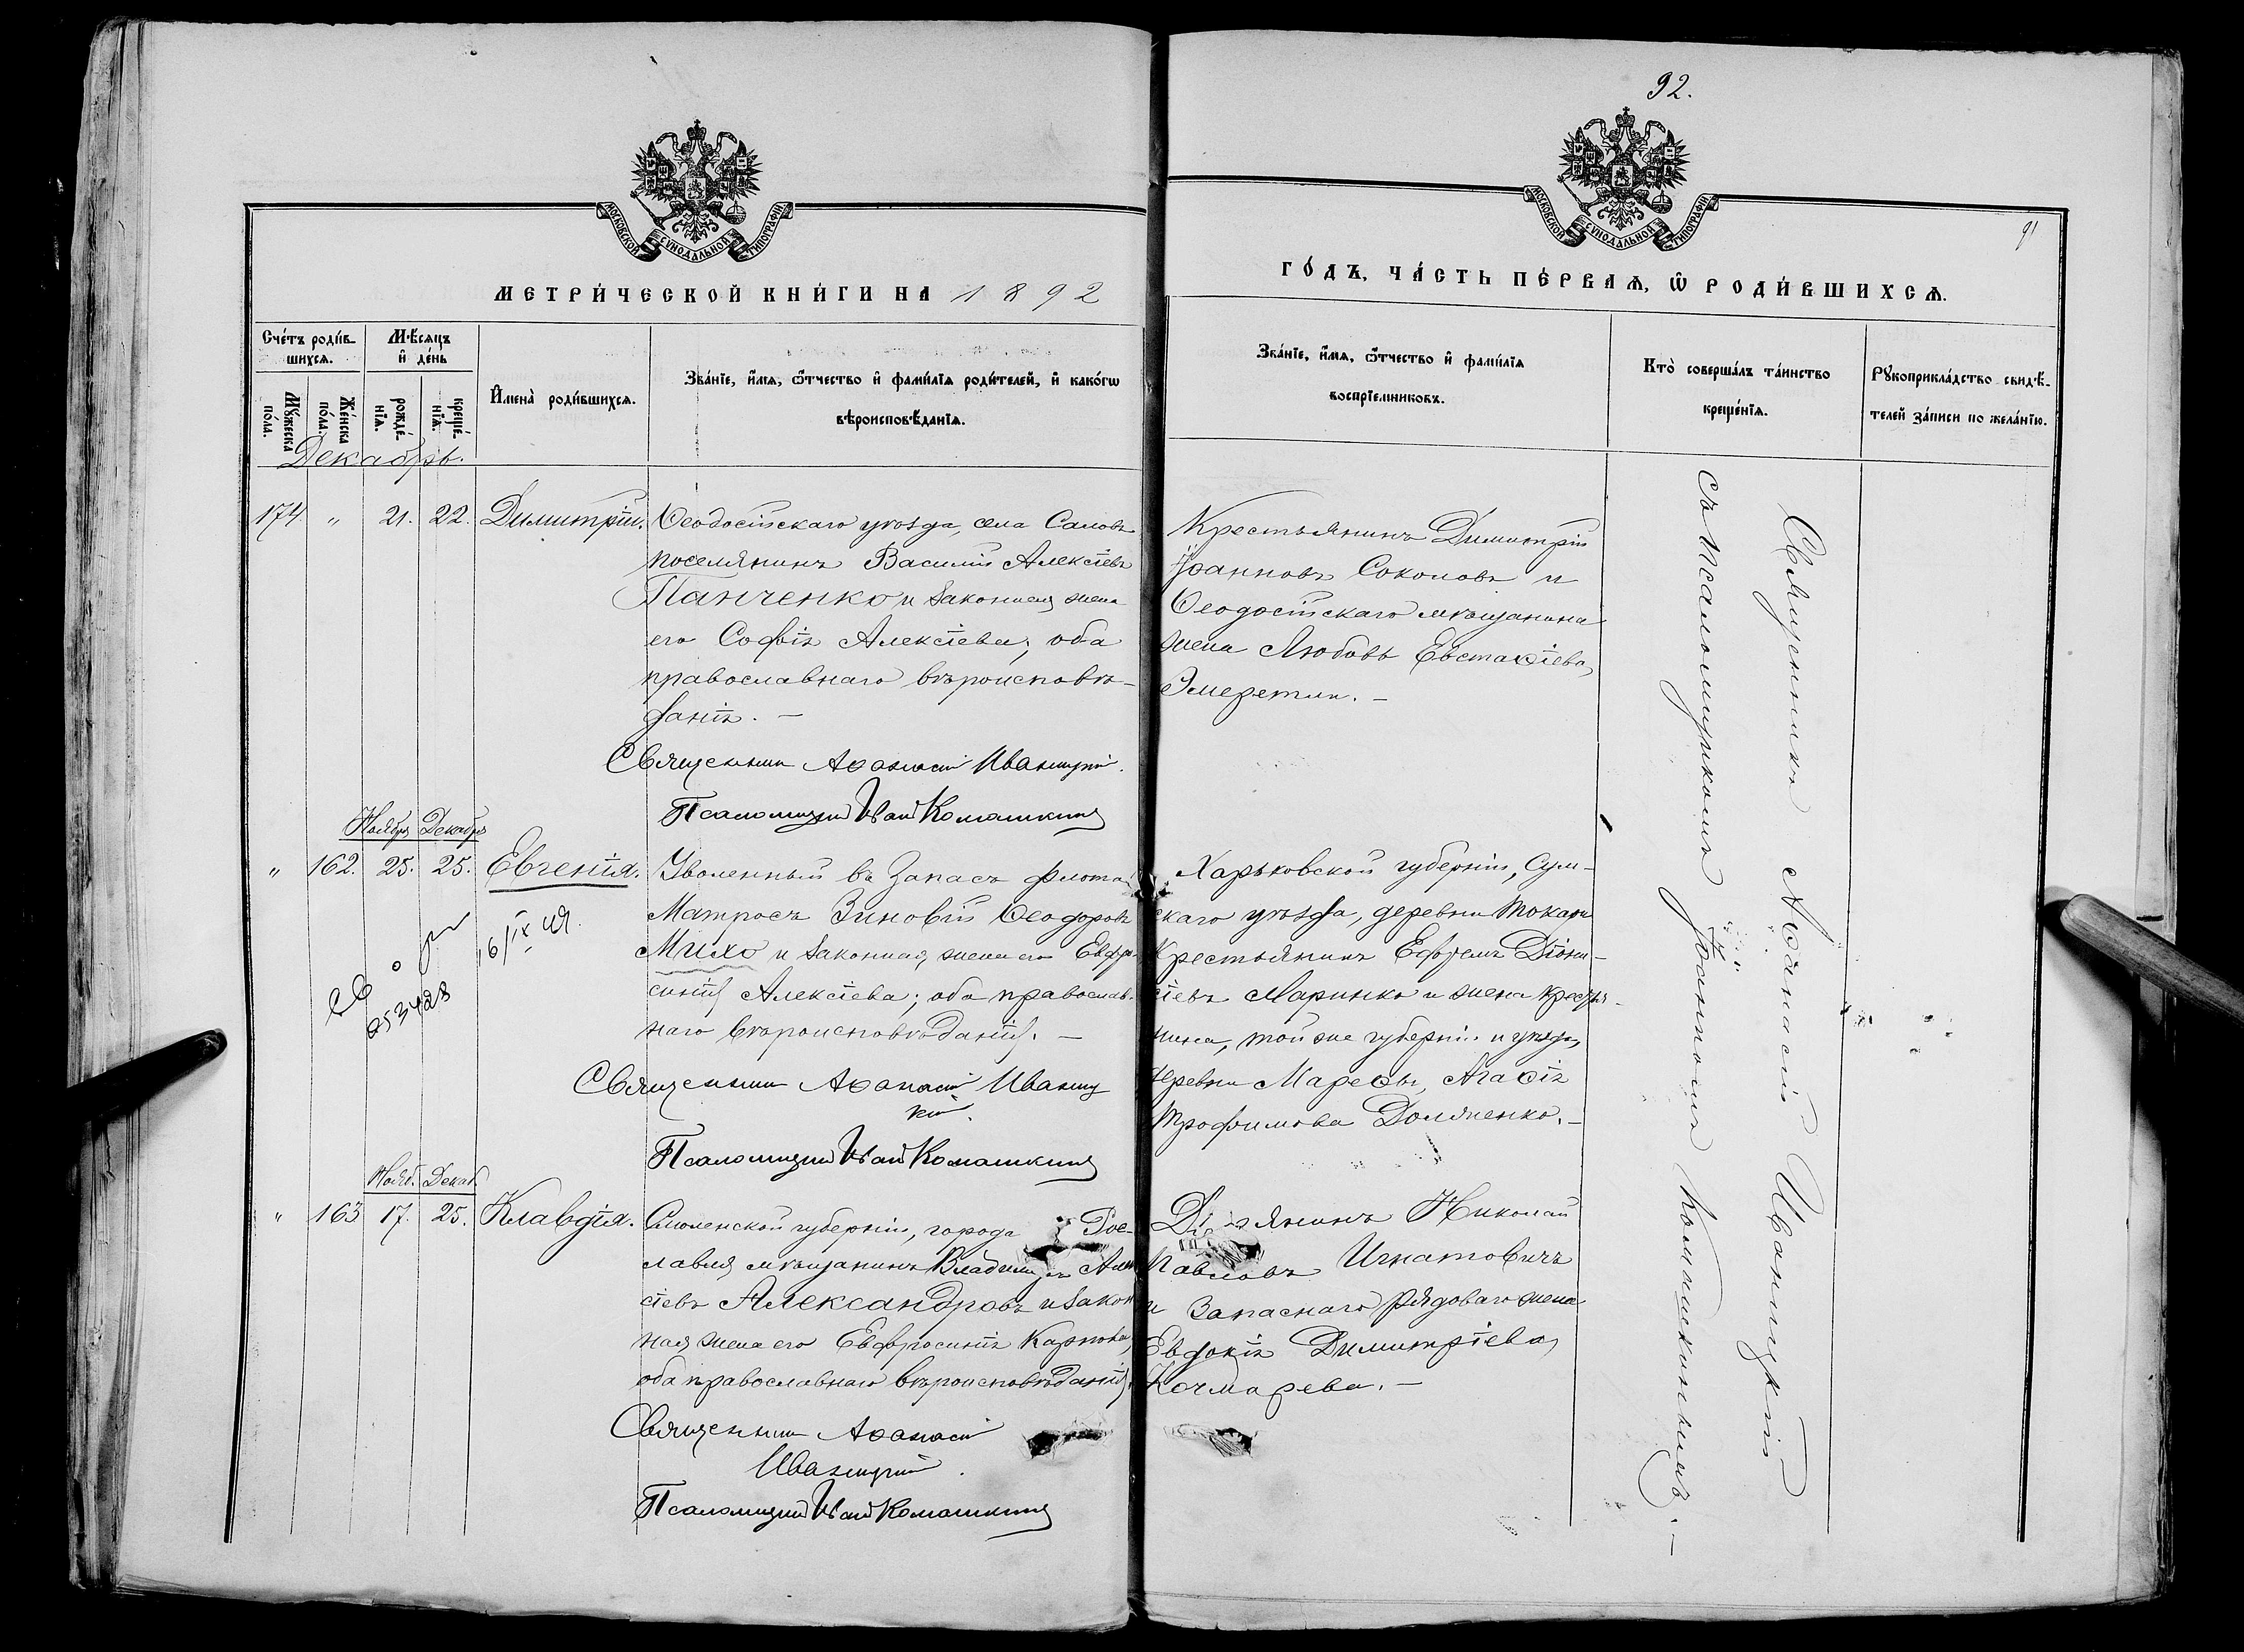 92.
91
МОСКОВСКОЙ СУНОДАЛЬНОЙ ТИПОГРАФІИ
МОСКОВСКОЙ СУНОДАЛЬНОЙ ТИПОГРАФІИ
МЕТРИ́ЧЕСКОЙ КНИ́ГИ НА 1892
ГО́ДЪ, ЧА́СТЬ ПЕ́РВАѦ, Ѿ РОДИ́ВШИХСѦ.
Сче́тъ роди́в-
шихсѧ.
Мꙋ́жеска по́ла.
Же́нска по́ла.
Мѣ́сѧцъ
и҆ де́нь
рожде́-
нїѧ.
креще́-
нїѧ.
И҆мена̀ роди́вшихсѧ.
Зва́нїе, и҆́мѧ, ѻ҆́тчество и҆ фами́лїѧ роди́телей, и҆ како́гѡ
вѣроисповѣ́данїѧ.
Зва́нїе, и҆́мѧ, ѻ҆́тчество и҆ фами́лїѧ
воспрїе́мниковъ.
Кто̀ соверша́лъ та́инство
креще́нїѧ.
Рꙋкоприкла́дство свидѣ́-
телей за́писи по жела́нїю.
Декабрь.
174 " 21. 22. Димитрій.
Ѳеодосійскаго уѣзда, села Саловъ
поселянинъ Василій Алексіевъ
Панченко и законная жена
его Софія Алексіева; оба
православнаго вѣроисповѣ-
данія. —
Священникъ Аѳанасій Иваницкій.
Псаломщикъ Иванъ Комашкинъ
Крестьянинъ Димитрій
Іоанновъ Соколовъ и
Ѳеодосійскаго мѣщанина
жена Любовь Евстаѳіева,
Эмеретли. —
Ноябрь Декабрь
" 162. 25. 25. Евгенія.
16/IX 49.
253428
Уволенный въ Запасъ флота
Матросъ Зиновій Ѳеодоровъ
Михо и законная жена его Евфро-
синія Алексіева; оба православ-
наго вѣроисповѣданія. —
Священникъ Аѳанасій Иваниц
кій.
Псаломщикъ Иванъ Комашкинъ
Харьковской губерніи, Сум-
скаго уѣзда, деревни Токари
Крестьянинъ Ефремъ Діони-
сіевъ Маринко и жена крестья-
нина, той же губерніи и уѣзда,
деревни
Трофимова Доляченко. —
Нояб. Декаб.
" 163 17. 25. Клавдія.
Смоленской губерніи, города Рос-
лавля мѣщанинъ Владиміръ Алек
сіевъ Александровъ и закон
ная жена его Евфросинія Карпова,
оба православнаго вѣроисповѣданія.
Священникъ Аѳанасій
Иваницкій.
Псаломщикъ Иванъ Комашкинъ
Николай
Павловъ Игнатовичъ
и запаснаго рядоваго жена
Евдокія Димитріева,
Кочмарева. —
Священникъ Аѳанасій Иваницкій
съ Псаломщикомъ Іоанномъ Комашкинымъ. —